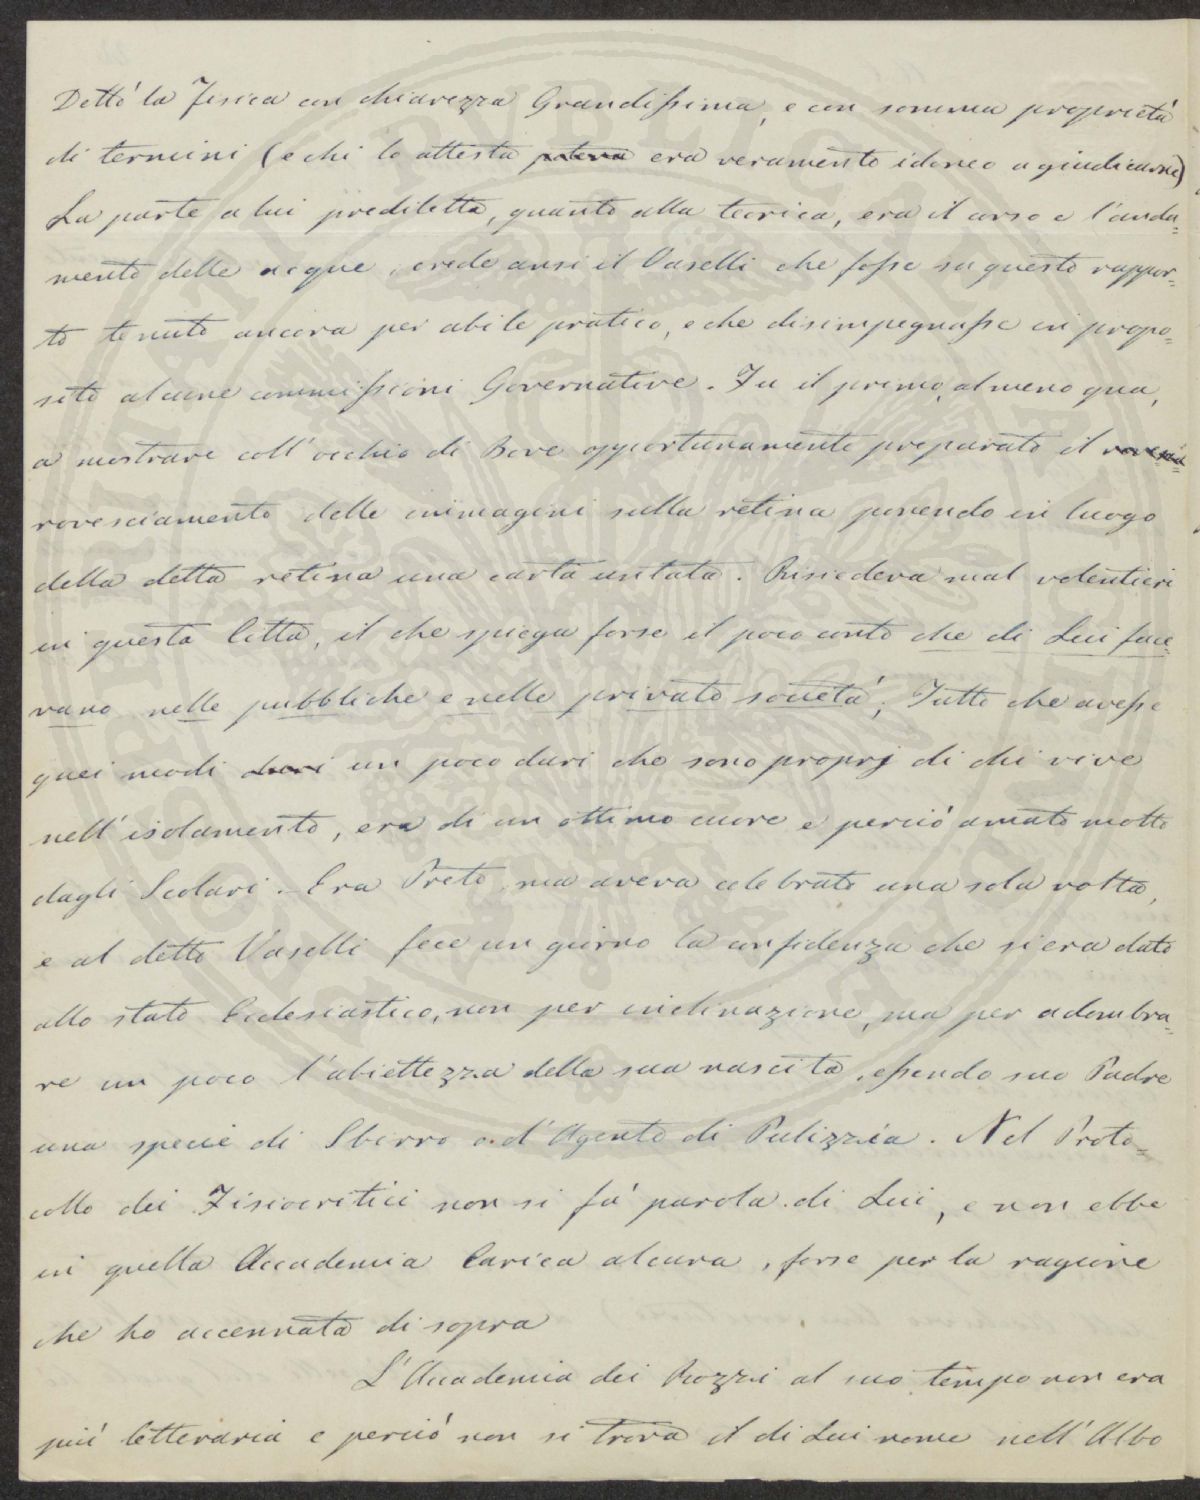 Dettò la Fisica con chiarezza Grandissima, e con somma proprietà
di termini (e chi lo attesta poteva era veramente idoneo a giudicarne)
La parte a lui prediletta, quanto alla teorica, era il corso e l'anda=
mento delle acque, crede ansi il Vaselli che fosse su questo rappor=
to tenuto ancora per abile pratico, e che disimpegnasse in propo=
sito alcune commissioni Governative. Fu il primo, almeno qua,
a mostrare coll'occhio di Bove opportunamente preparato il
rovesciamento delle immagini sulla retina ponendo in luogo
della detta retina una carta untata. Risiedeva mal volentieri
in questa Città, il che spiega forse il poco conto che di Lui face=
vano nelle pubbliche e nelle private società; Tutto che avesse
quei modi duri un poco duri che sono proprj di chi vive
nell'isolamento, era di un ottimo cuore e perciò amato molto
dagli Scolari. Era Prete, ma aveva celebrato una sola volta,
e al detto Vaselli fece un giorno la confidenza che si era dato
allo stato Ecclesiastico, non per inclinazione, ma per adombra=
re un poco l'abiettezza della sua nascita, essendo suo Padre
una specie di Sbirro o d'Agente di Pulizzia. Nel Proto=
collo dei Fisiocritici non si fà parola di Lui, e non ebbe
in quella Accademia Carica alcuna, forse per la ragione
che ho accennata di sopra
L'Accademia dei Rozzi al suo tempo non era
più letteraria e perciò non si trova il di Lui nome nell'Albo